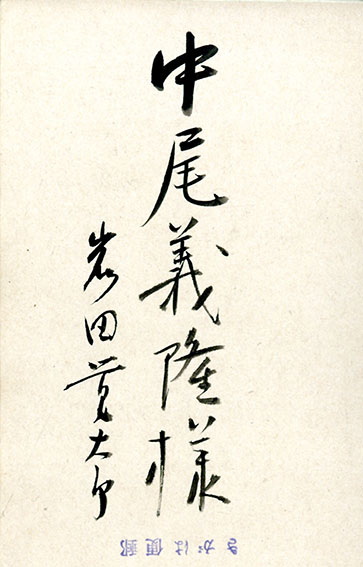 中尾義隆様
岩田専太郎
郵便はがき